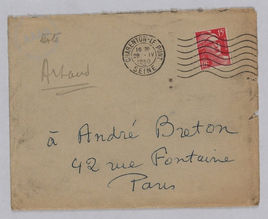 Artaud
CHARENTON-LE-PONT
SEINE
15
à André Breton
42 rue Fontaine
Paris